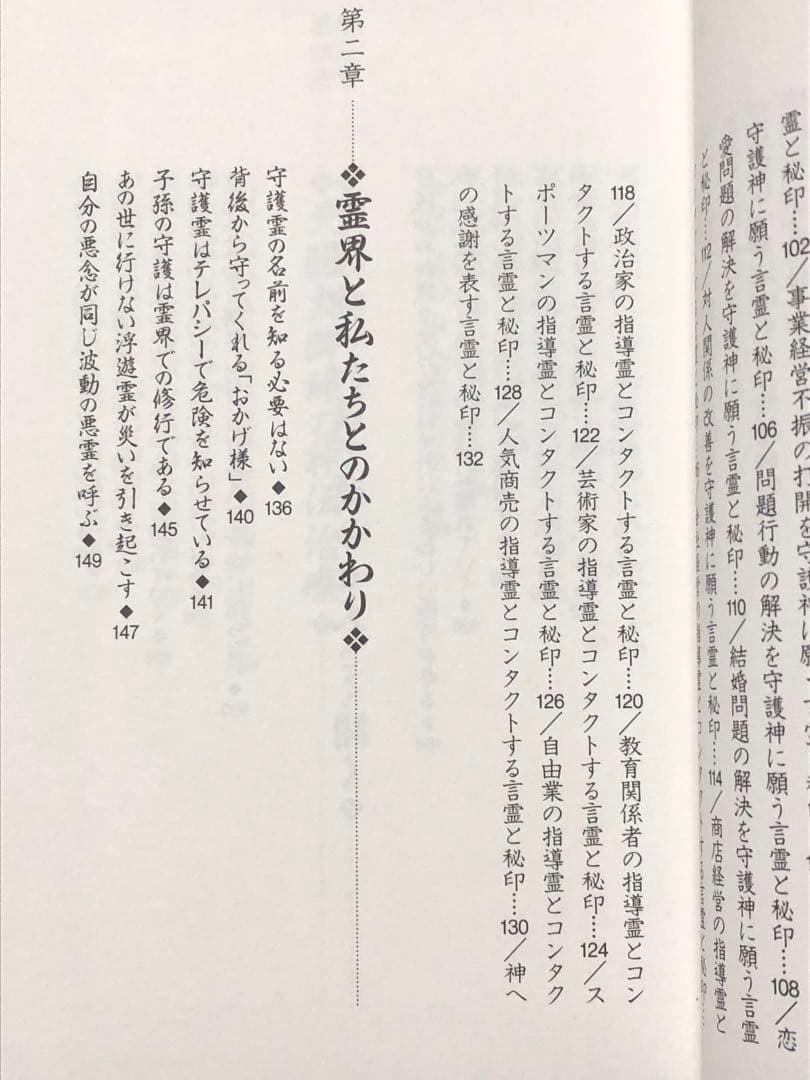 霊と秘印……102／事業経営不振の打開を守護神に願う言霊と秘印
守護神に願う言霊と秘印……106／問題行動の解決を守護神に願う言霊と秘印……108／恋
愛問題の解決を守護神に願う言霊と秘印……110／結婚問題の解決を守護神に願う言霊
と秘印……112／対人関係の改善を守護神に願う言霊と秘印……114／商店経営の指導霊と
118／政治家の指導霊とコンタクトする言霊と秘印……120／教育関係者の指導霊とコン
タクトする言霊と秘印……122／芸術家の指導霊とコンタクトする言霊と秘印……124／ス
ポーツマンの指導霊とコンタクトする言霊と秘印……126／自由業の指導霊とコンタク
トする言霊と秘印……128／人気商売の指導霊とコンタクトする言霊と秘印……130／神へ
の感謝を表す言霊と秘印……132
第二章……❖霊界と私たちとのかかわり❖……
守護霊の名前を知る必要はない◆136
背後から守ってくれる「おかげ様」◆140
守護霊はテレパシーで危険を知らせている◆141
子孫の守護は霊界での修行である◆145
あの世に行けない浮遊霊が災いを引き起こす◆147
自分の悪念が同じ波動の悪霊を呼ぶ◆149